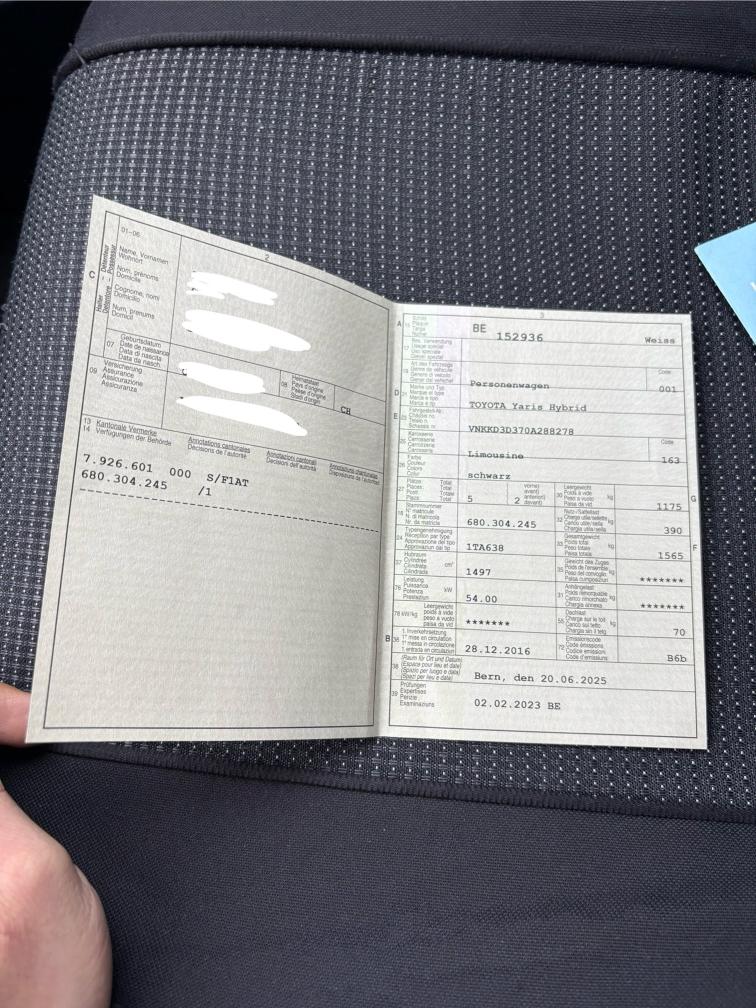 2
01-06
Name, Vornamen
Wohnort
Nom, prénoms
Domicile
Cognome, nomi
Domicilio
Num, prenums
Domicil
C
Halter
Détenteur
Detentore
Possessur
07
Geburtsdatum
Date de naissance
Data di nascita
Data da nasch.
08
Heimatstaat
Pays d'origine
Paese d'origine
Stadi d'origin
CH
09
Versicherung
Assurance
Assicurazione
Assicuranza
13 Kantonale Vermerke
14 Verfügungen der Behörde
Annotations cantonales
Décisions de l'autorité
Annotazioni cantonali
Decisioni dell'autorità
Annotaziuns chantunalas
7.926.601 000 S/F1AT
680.304.245 /1
3
A 15
Schild
Plaque
Targa
BE 152936 Weiss
Code
D
Personenwagen 001
Marke und Typ
Marque et type
Marca e tipo
Marca e tip
TOYOTA Yaris Hybrid
E 23
Fahrgestell-Nr.
Châssis no.
Telaio n.
VNKKD3D370A288278
25
Karosserie
Carrosserie
Carrozzeria
Code
Limousine 163
26
Farbe
Couleur
Colore
Color
schwarz
27
Plätze: Total
Places: Total
Posti: Totale
Plazs: Total
5 2
vorne)
avant)
davanti)
30
Leergewicht
Poids à vide
Peso a vuoto
Paisa da vid
kg
1175
G
18
Stammnummer
N° matricule
N. di matricola
Nr. da matricla
680.304.245
32
Nutz-/Sattellast
kg
390
24
Typengenehmigung
Réception par type
Approvazione del tipo
Approvaziun dal tip
1TA638
33
Gesamtgewicht
Poids total
Peso totale
Paisa totala
kg
1565
F
37
Hubraum
Cylindrée
Cilindrata
Cilindrada
cm³
1497
35
Gewicht des Zuges
Poids de l'ensemble
Peso del convoglio
Paisa cumposiziun
kg
*******
76
Leistung
Puissance
Potenza
Prestaziun
kW
54.00
31
Anhängelast
Poids remorquable
Carico rimorchiato
Chargia annexa
kg
*******
78 kW/kg
Leergewicht
poids à vide
peso a vuoto
paisa da vid
*******
55
Dachlast
Charge sur le toit
Carico sul tetto
Chargia sin il tetg
kg
70
B 36
1. Inverkehrsetzung
1re mise en circulation
1a messa in circolazione
1. entrada en circulaziun
28.12.2016
72
Emissionscode
Code émissions
Codice emissioni
Code d'emissiuns
B6b
38
(Raum für Ort und Datum)
(Espace pour lieu et date)
(Spazio per luogo e data)
(Spazi per lieu e data)
Bern, den 20.06.2025
39
Prüfungen
Expertises
Perizie
Examinaziuns
02.02.2023 BE